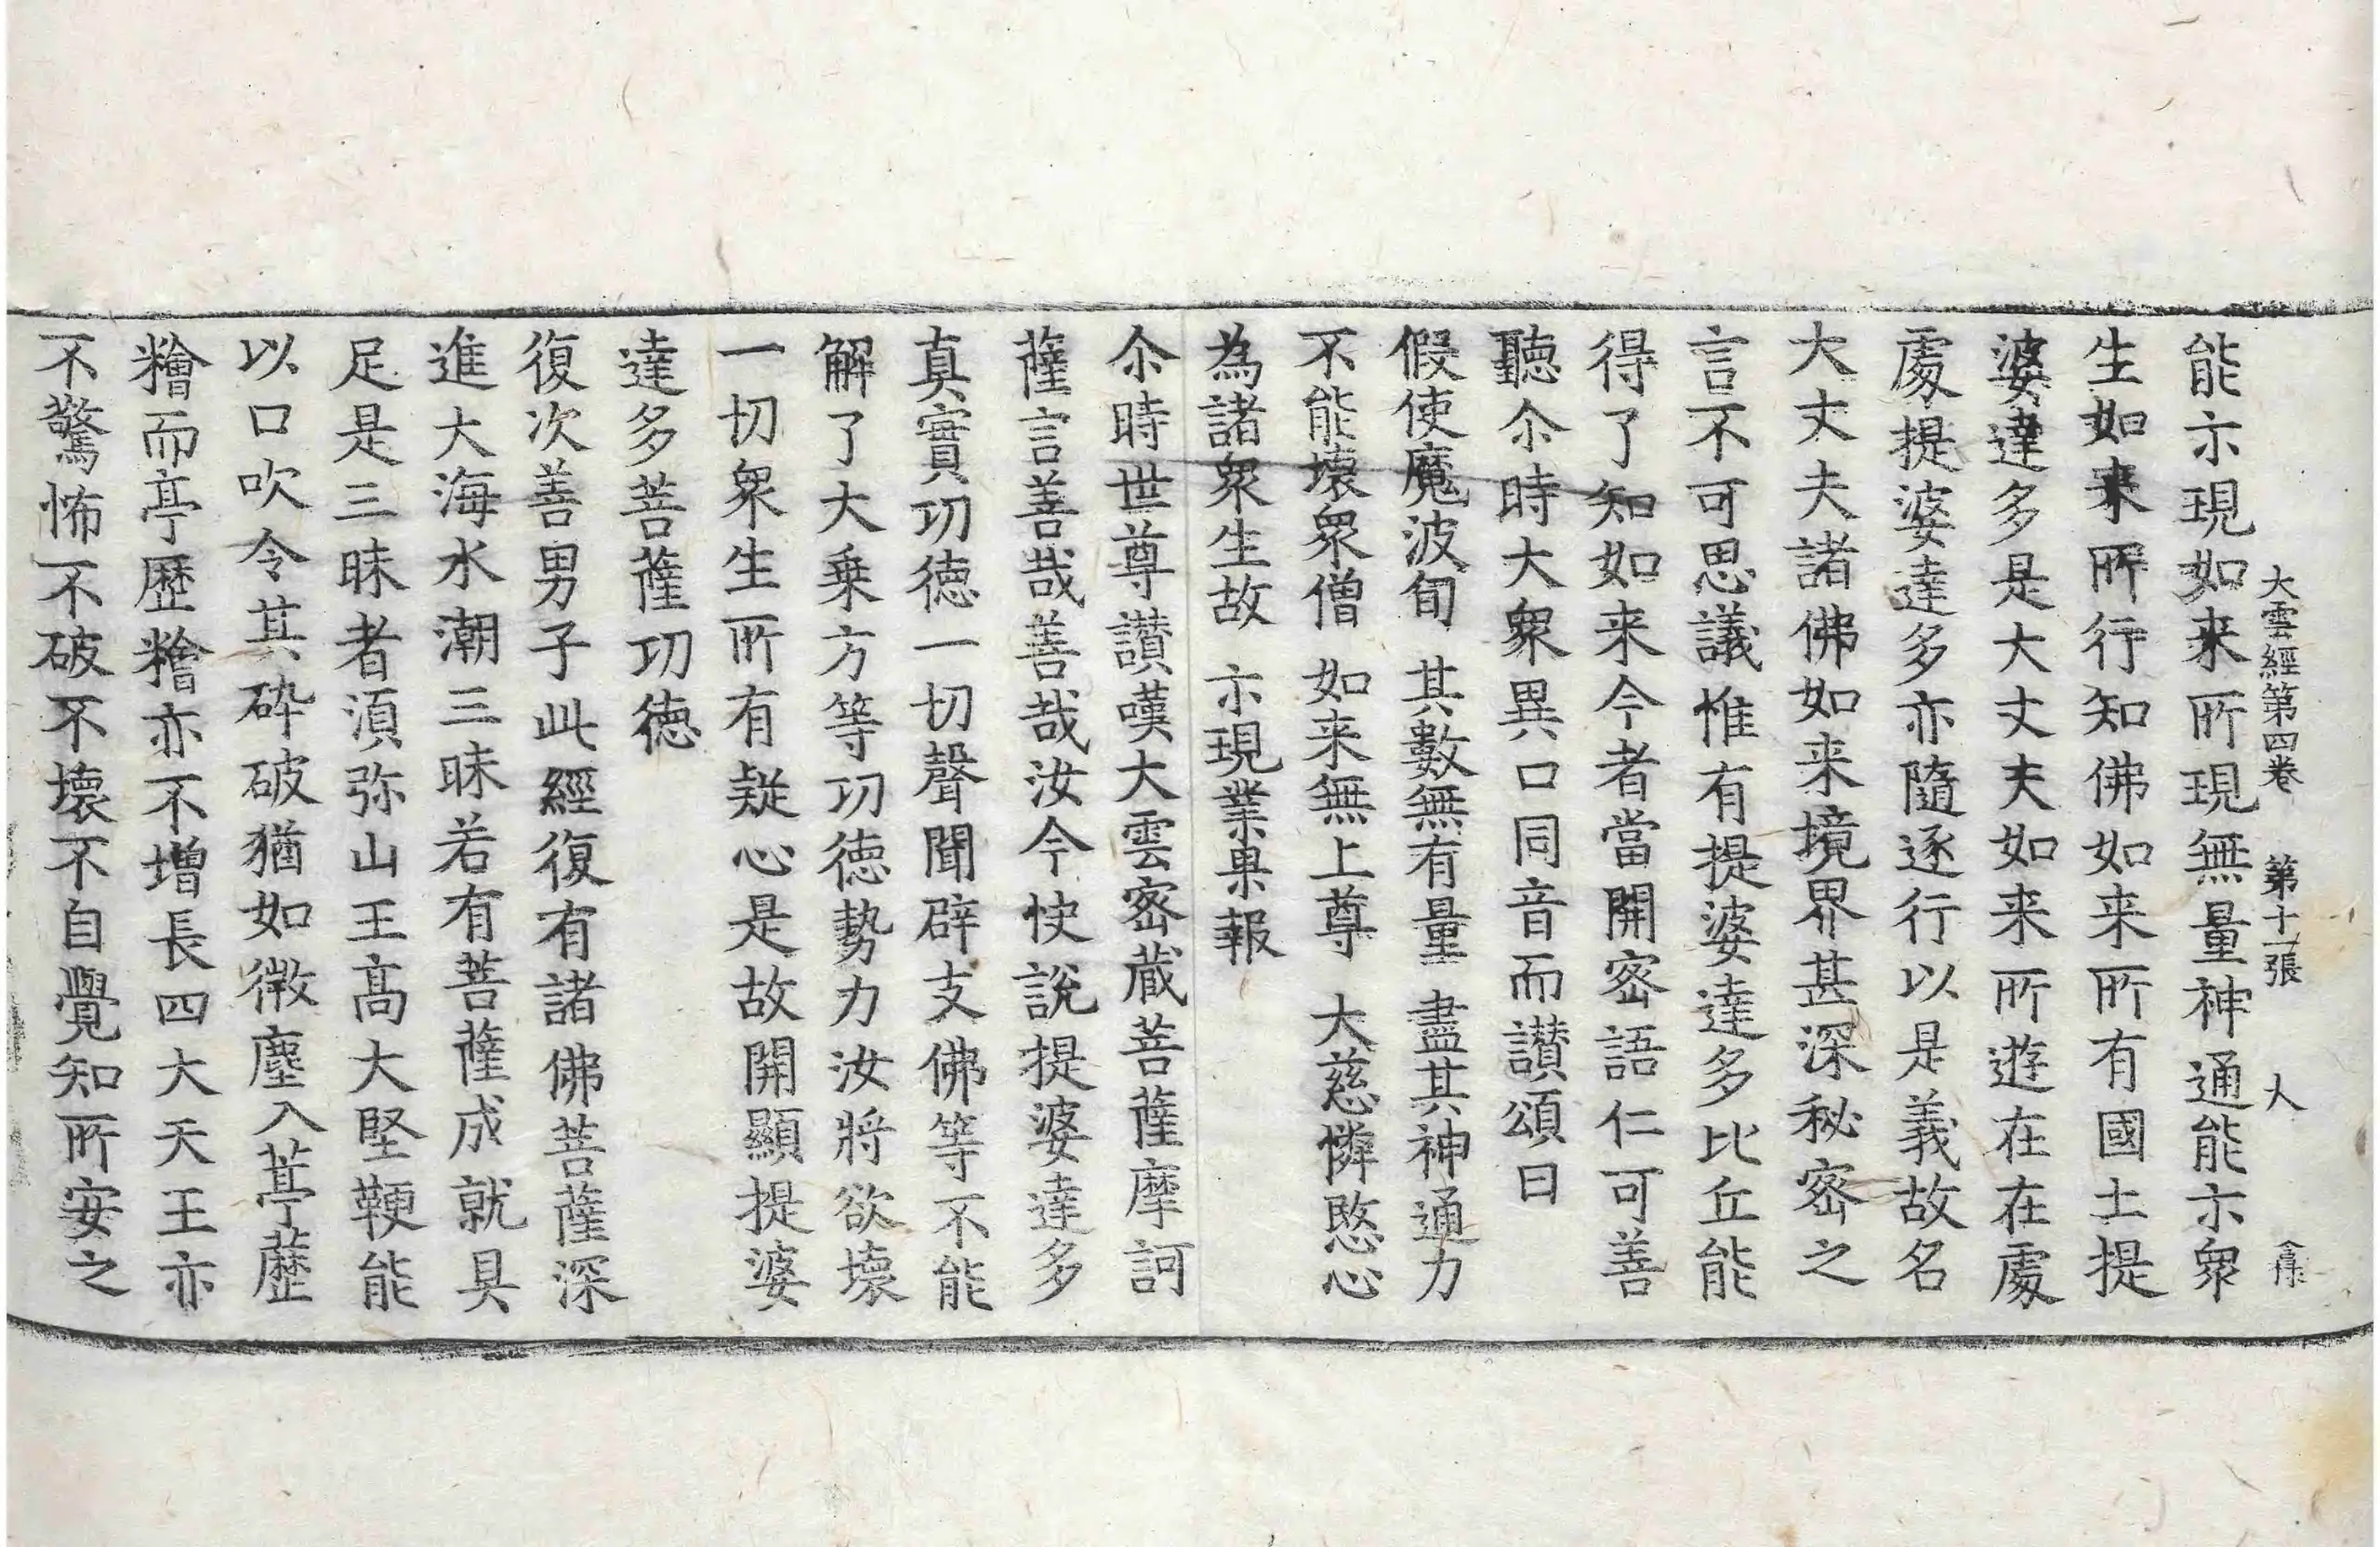 大雲經第四卷 第十一張 大
能示現如来所現無量神通能示衆
生如来所行知佛如来所有國土提
婆達多是大丈夫如来所遊在在處
處提婆達多亦隨逐行以是義故名
大丈夫諸佛如来境界甚深秘密之
言不可思議惟有提婆達多比丘能
得了知如来今者當開密語仁可善
聽尒時大衆異口同音而讃頌曰
假使魔波旬 其數無有量 盡其神通力
不能壞衆僧 如来無上尊 大慈憐愍心
為諸衆生故 示現業果報
尒時世尊讃嘆大雲密蔵菩薩摩訶
薩言善哉善哉汝今快說提婆達多
真實功徳一切聲聞辟支佛等不能
解了大乗方等功徳勢力汝將欲壞
一切衆生所有疑心是故開顯提婆
達多菩薩功徳
復次善男子此經復有諸佛菩薩深
進大海水潮三昧若有菩薩成就具
足是三昧者湏弥山王髙大堅鞕能
以口吹令其碎破猶如微塵入葶藶
𥽇而亭歷𥽇亦不増長四大天王亦
不驚怖不破不壞不自覺知所安之